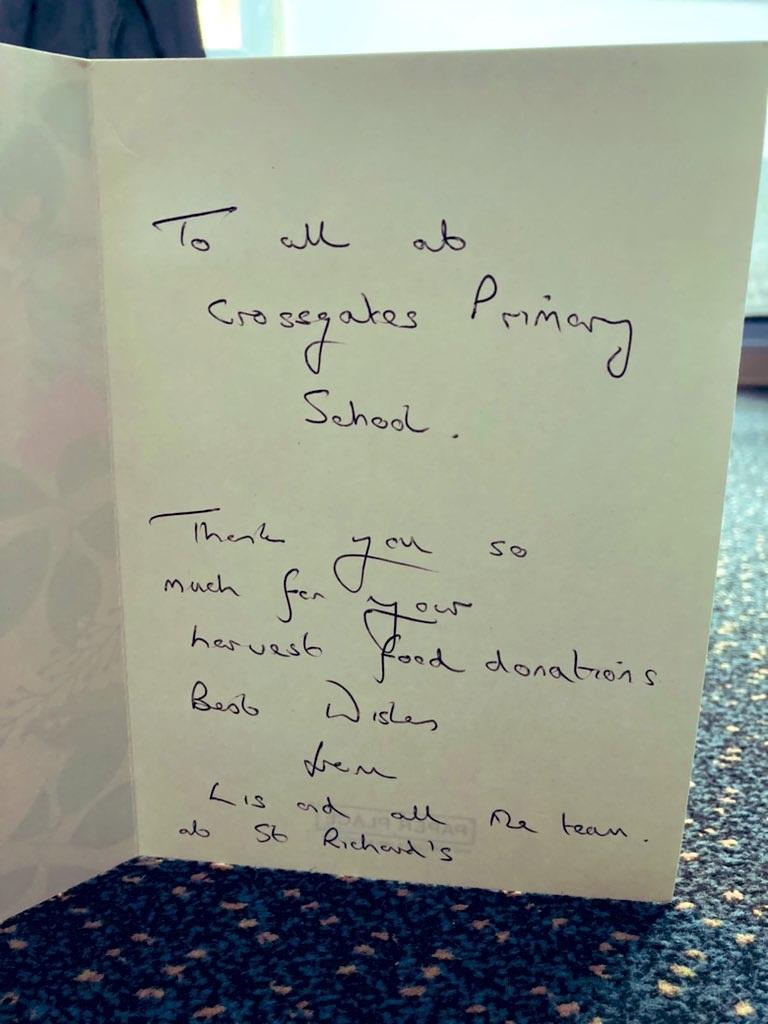 To all at
Crossgates Primary
School.
Thank you so
much for your
harvest food donations
Best Wishes
from
Lis and all the team.
at St Richard's
PAPER PLACE